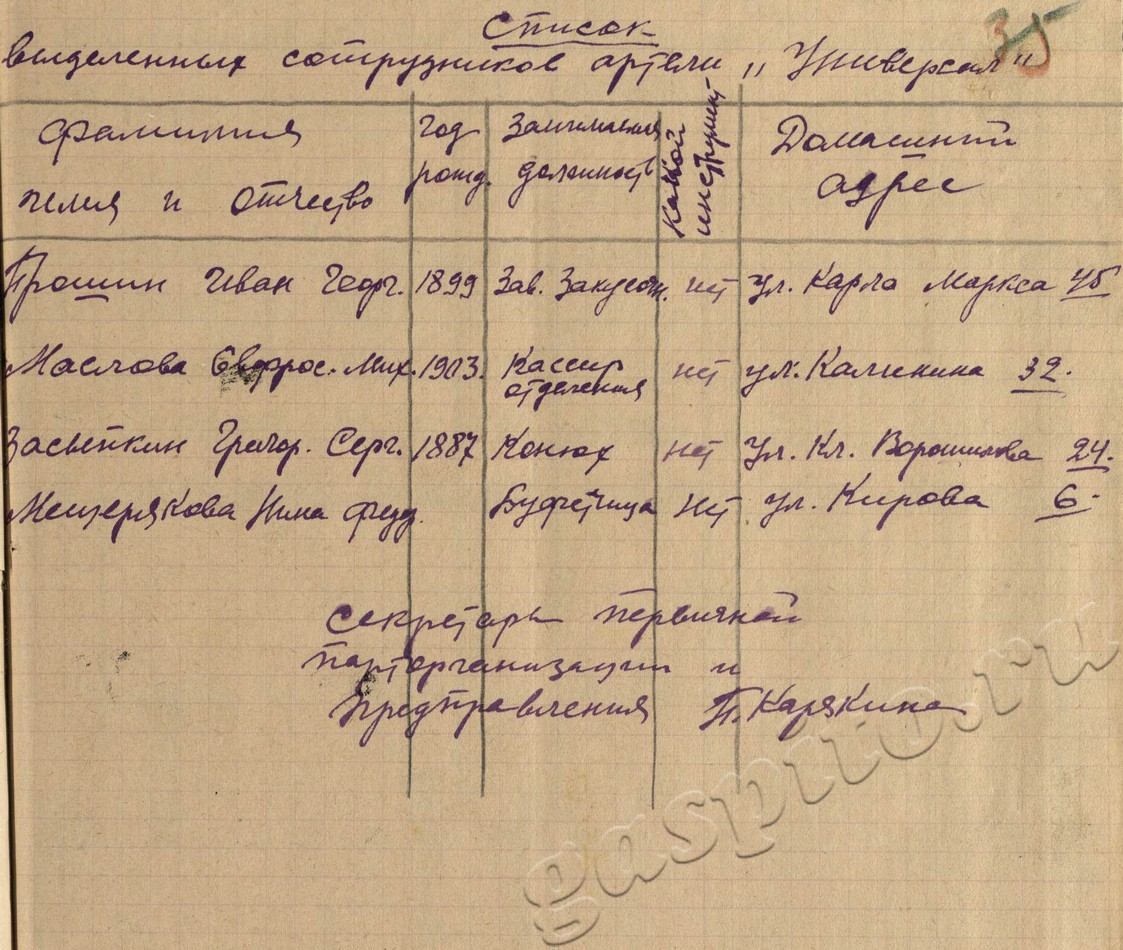 35
Список
выделенных сотрудников артели „Универсал"
Фамилия имя и отчество | Год рожд. | Занимаемая должность | Какой инструмент | Домашний адрес
Прошин Иван Геор. 1899 Зав. Закусочн. нет ул. Карла Маркса 45
Маслова Евфрос. Мих. 1903. Кассир отделения нет ул. Калинина 32.
Засыпкин Григор. Серг. 1887 Конюх нет ул. Кл. Ворошилова 24.
Мещерякова Нина Федд. Буфетчица нет ул. Кирова 6.
Секретарь первичной
парторганизации и
Предправления П. Карякина
gaspito.ru